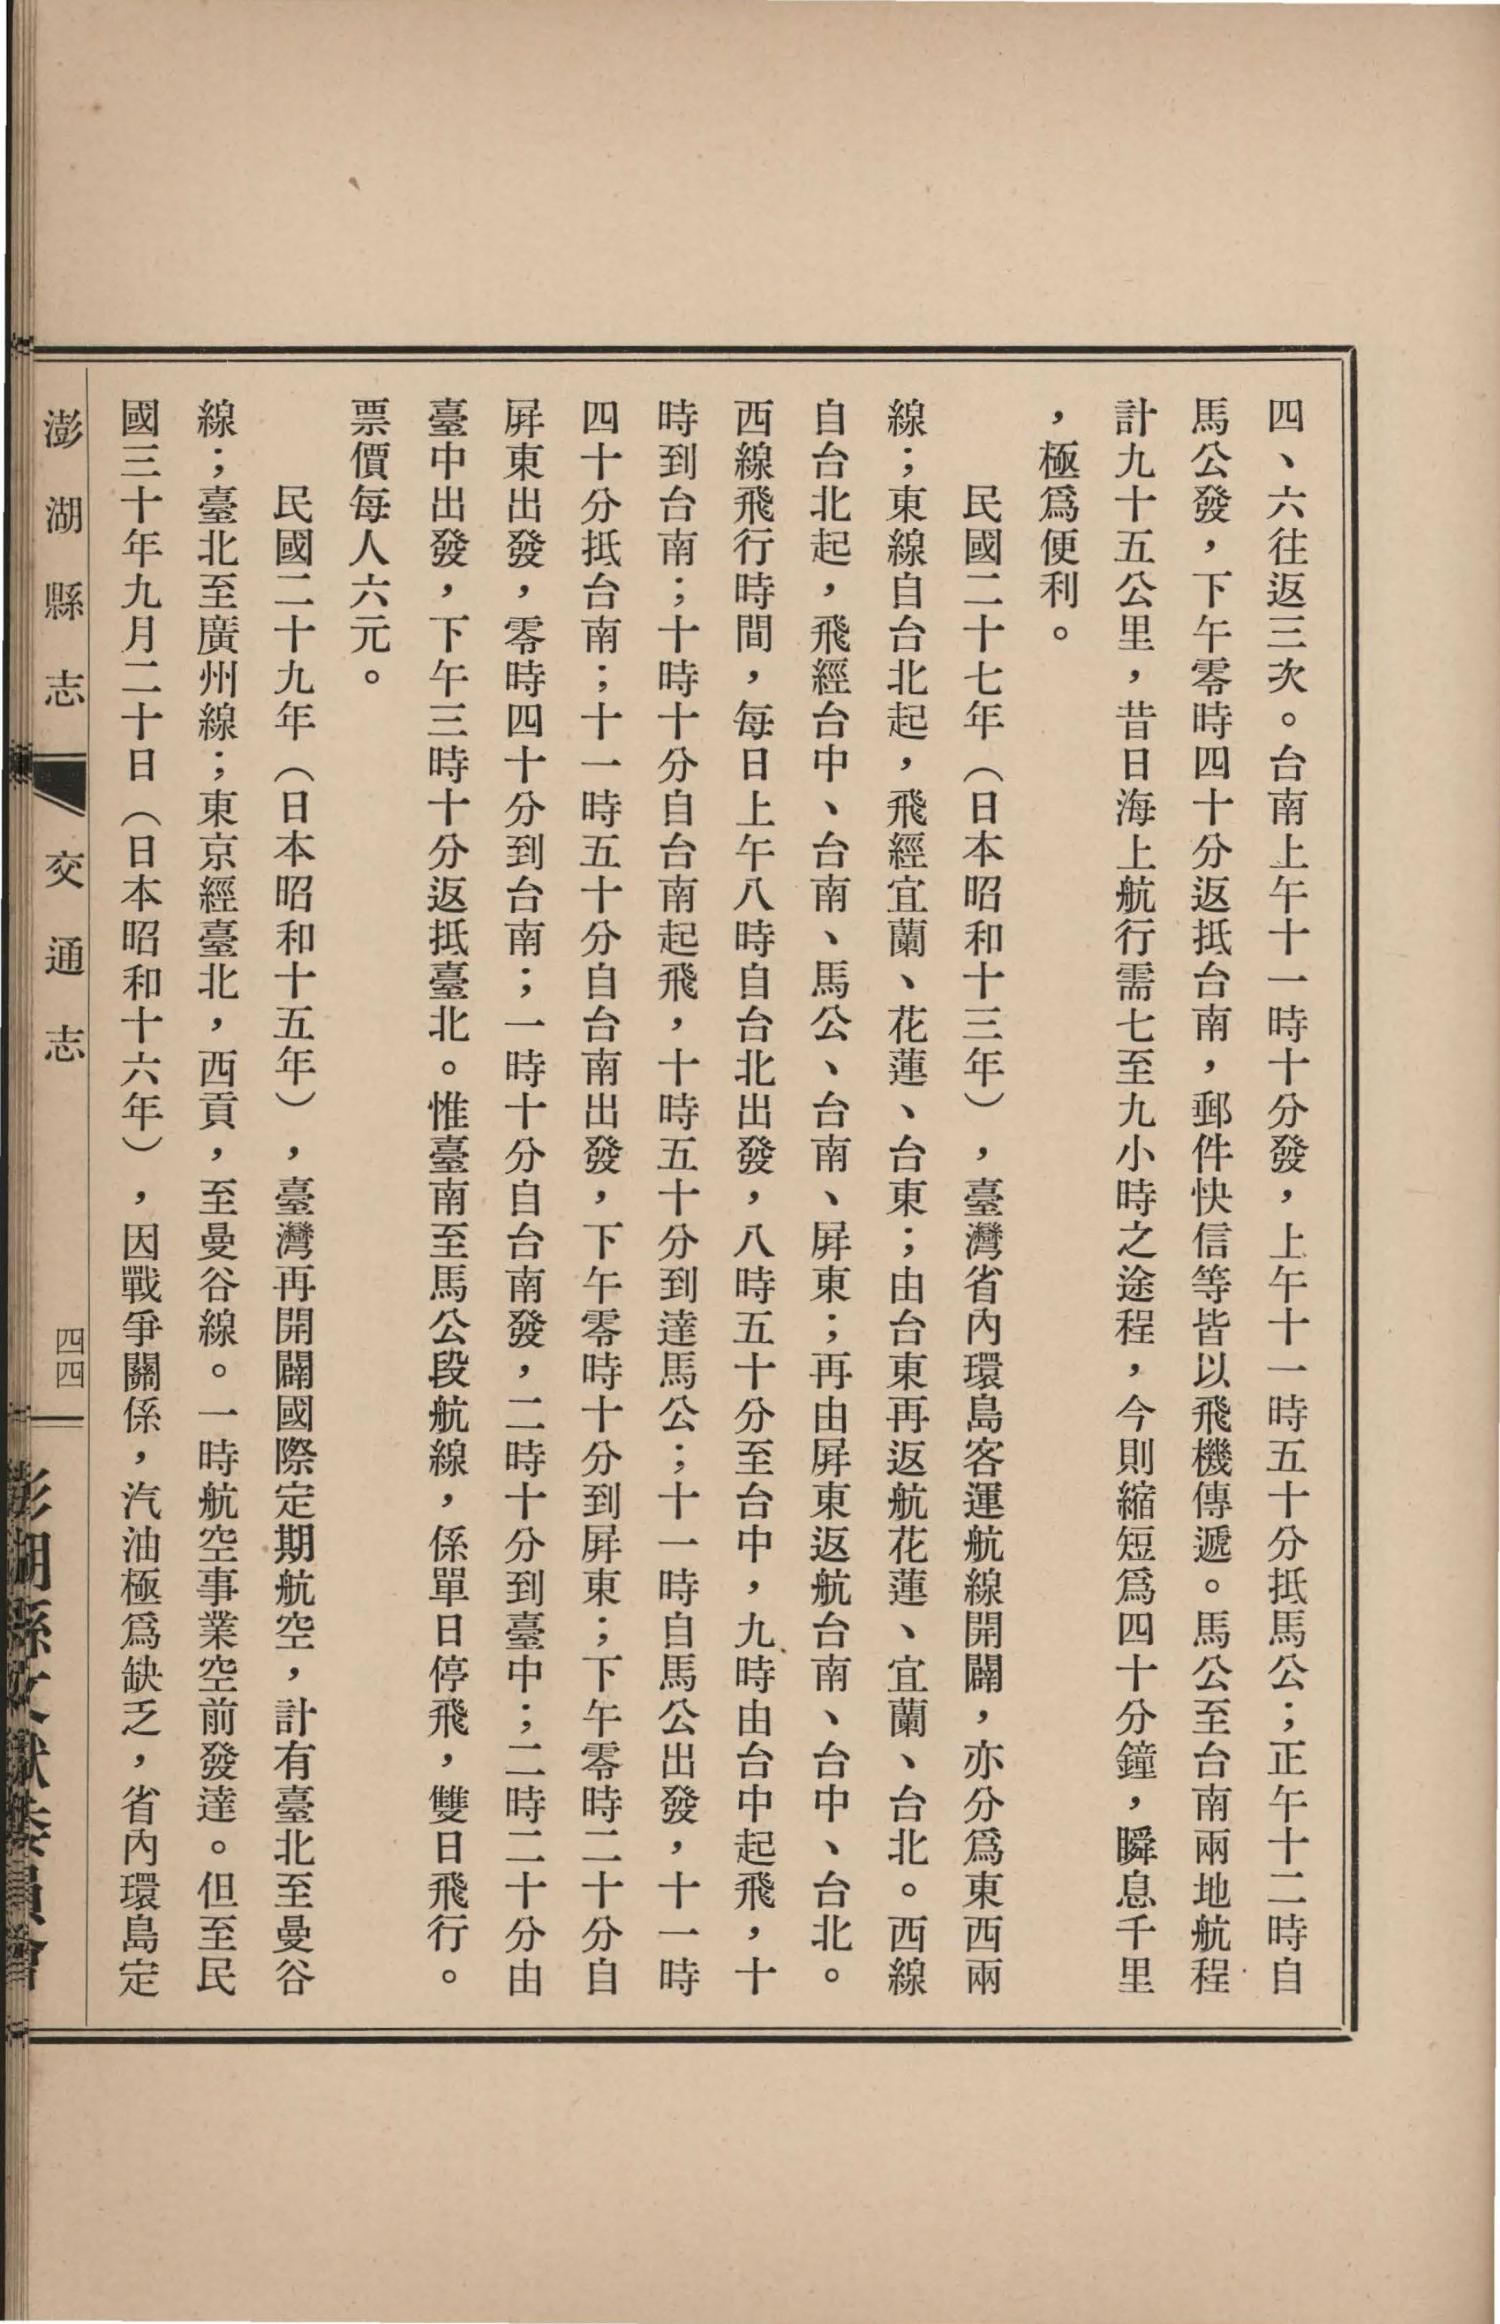 四、六往返三次。台南上午十一時十分發，上午十一時五十分抵馬公；正午十二時自
馬公發，下午零時四十分返抵台南，郵件快信等皆以飛機傳遞。馬公至台南兩地航程
計九十五公里，昔日海上航行需七至九小時之途程，今則縮短爲四十分鐘，瞬息千里
，極爲便利。
民國二十七年（日本昭和十三年），臺灣省內環島客運航線開闢，亦分爲東西兩
線；東線自台北起，飛經宜蘭、花蓮、台東；由台東再返航花蓮、宜蘭、台北。西線
自台北起，飛經台中、台南、馬公、台南、屛東；再由屛東返航台南、台中、台北。
西線飛行時間，每日上午八時自台北出發，八時五十分至台中，九時由台中起飛，十
時到台南；十時十分自台南起飛，十時五十分到達馬公；十一時自馬公出發，十一時
四十分抵台南；十一時五十分自台南出發，下午零時十分到屛東；下午零時二十分自
屛東出發，零時四十分到台南；一時十分自台南發，二時十分到臺中；二時二十分由
臺中出發，下午三時十分返抵臺北。惟臺南至馬公段航線，係單日停飛，雙日飛行。
票價每人六元。
民國二十九年（日本昭和十五年），臺灣再開闢國際定期航空，計有臺北至曼谷
線；臺北至廣州線；東京經臺北，西貢，至曼谷線。一時航空事業空前發達。但至民
國三十年九月二十日（日本昭和十六年），因戰爭關係，汽油極爲缺乏，省內環島定
澎湖縣志 交通志 四四
澎湖縣文獻委員會